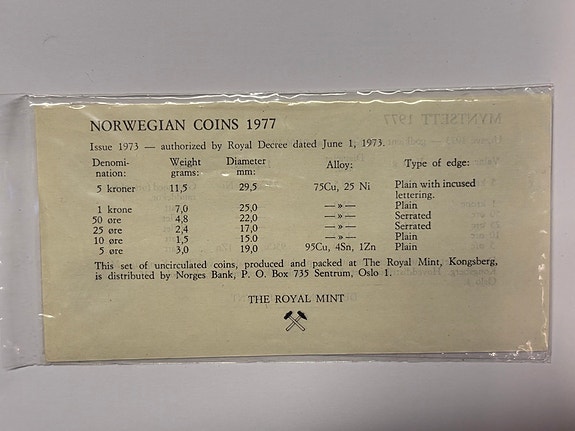 NORWEGIAN COINS 1977
Issue 1973 — authorized by Royal Decree dated June 1, 1973.
Denomi- Weight Diameter Alloy: Type of edge:
nation: grams: mm:
5 kroner 11,5 29,5 75Cu, 25 Ni Plain with incused
lettering.
1 krone 7,0 25,0 —»— Plain
50 øre 4,8 22,0 —»— Serrated
25 øre 2,4 17,0 —»— Serrated
10 øre 1,5 15.0 —»— Plain
5 øre 3,0 19,0 95Cu, 4Sn, 1Zn Plain
This set of uncirculated coins, produced and packed at The Royal Mint, Kongsberg,
is distributed by Norges Bank, P. O. Box 735 Sentrum, Oslo 1.
THE ROYAL MINT
MYNTSETT 1977